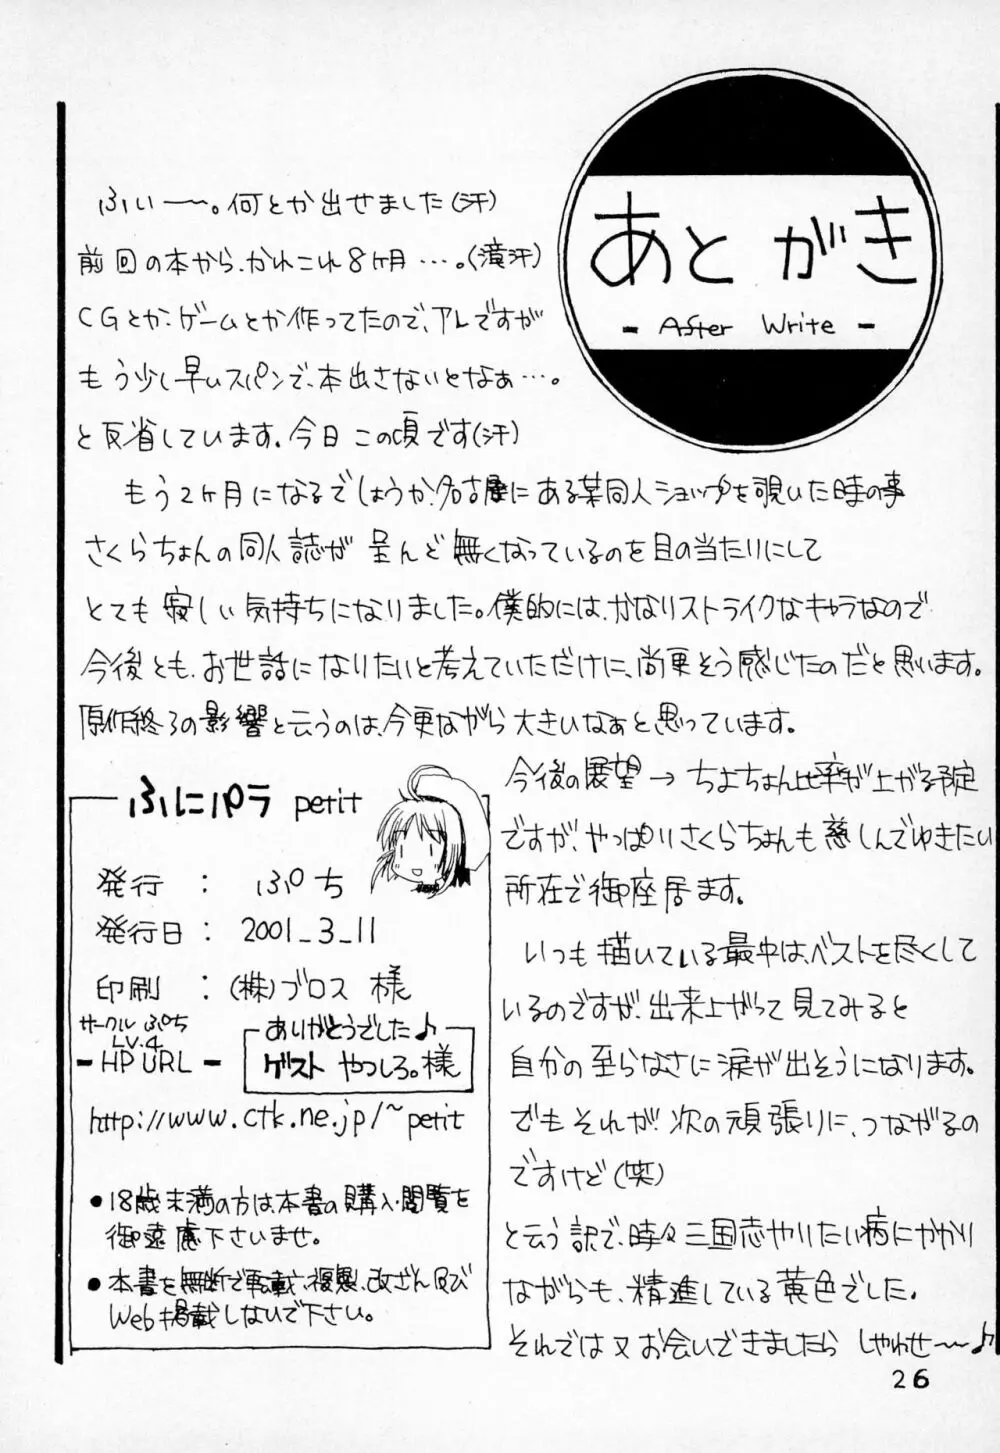 あとがき
- After Write -
ふい〜〜。何とか出せました(汗)
前回の本から、かれこれ8ヶ月…。(滝汗)
CGとか、ゲームとか作ってたので、アレですが
もう少し早いスパンで、本出さないとなぁ…。
と反省しています。今日この頃です(汗)
もう2ヶ月になるでしょうか、名古屋にある某同人ショップを覗いた時の事
さくらちょんの同人誌が 呈んど無くなっているのを目の当たりにして
とても寂しい気持ちになりました。僕的には、かなりストライクなキャラなので
今後とも、お世話になりたいと考えていただけに、尚更そう感じたのだと思います。
原作終了の影響と云うのは、今更ながら大きいなぁと思っています。
今後の展望 → ちよちょん比率が上がる予定
ですが、やっぱりさくらちょんも慈しんでゆきたい
所在で御座居ます。
いつも描いている最中は、ベストを尽くして
いるのですが、出来上がって見てみると
自分の至らなさに涙が出そうになります。
でもそれが次の頑張りに、つながるの
ですけど(笑)
と云う訳で、時々三国志やりたい病にかかり
ながらも、精進している黄色でした。
それでは又お会いできましたら しやわせ〜〜♪
ふにパラ petit
発行 : ぷち
発行日 : 2001_3_11
印刷 : (株)ブロス 様
サークル ぷち
LV.4
- HP URL -
ありがとうでした♪
ゲスト やつしろ。様
http://www.ctk.ne.jp/~petit
●18歳未満の方は、本書の購入・閲覧を
御遠慮下さいませ。
●本書を無断で転載、複製、改ざん及び
Web掲載しないで下さい。
26